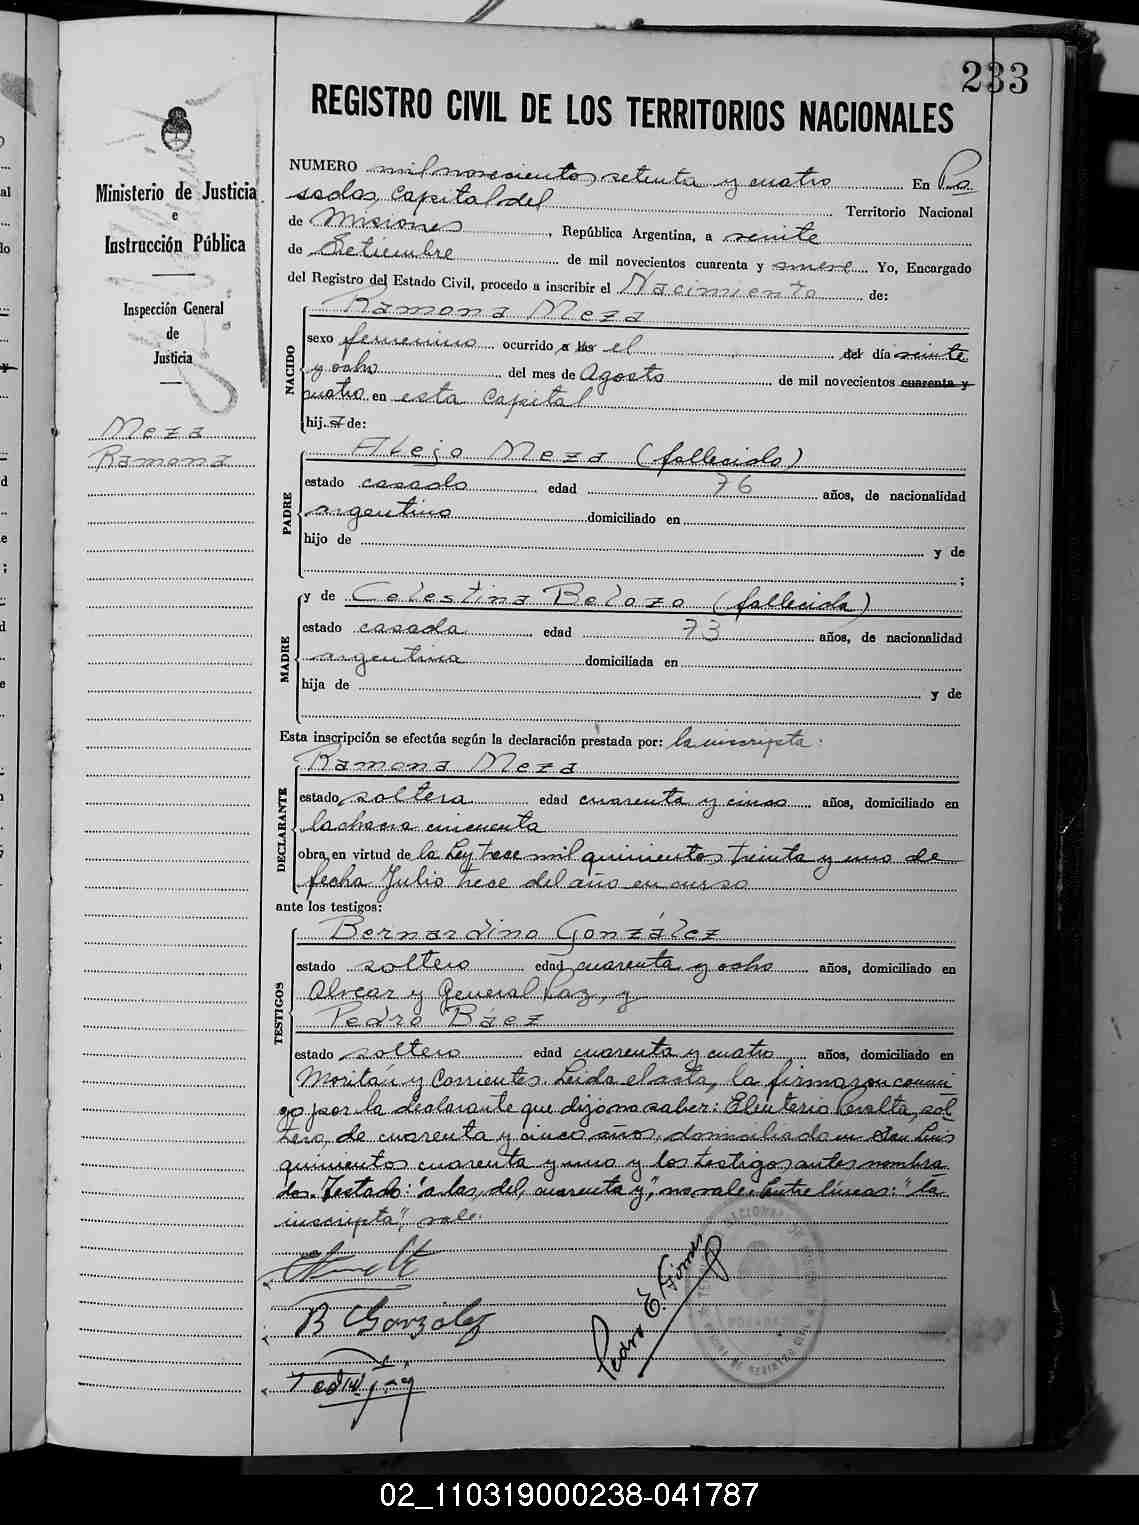 233
REGISTRO CIVIL DE LOS TERRITORIOS NACIONALES
Ministerio de Justicia
e
Instrucción Pública
Inspección General
de
Justicia
Meza
Ramona
NUMERO mil novecientos setenta y cuatro En Po
sadas Capital del Territorio Nacional
de Misiones, República Argentina, a veinte
de Setiembre de mil novecientos cuarenta y nueve Yo, Encargado
del Registro del Estado Civil, procedo a inscribir el Nacimiento de:
NACIDO
Ramona Meza
sexo femenino ocurrido a las el del día veinte
y ocho del mes de Agosto de mil novecientos cuarenta y
cuatro en esta Capital
hij a de:
PADRE
Alejo Meza (fallecido)
estado casado edad 76 años, de nacionalidad
argentino domiciliado en
hijo de y de
;
MADRE
y de Celestina Belozo (fallecida)
estado casada edad 73 años, de nacionalidad
argentina domiciliada en
hija de y de
Esta inscripción se efectúa según la declaración prestada por: la inscripta:
DECLARANTE
Ramona Meza
estado soltera edad cuarenta y cinco años, domiciliado en
la chacra cincuenta
obra en virtud de la Ley trece mil quinientos treinta y uno de
fecha Julio trece del año en curso
ante los testigos:
TESTIGOS
Bernardino González
estado soltero edad cuarenta y ocho años, domiciliado en
Alvear y General Paz, y
Pedro Báez
estado soltero edad cuarenta y cuatro años, domiciliado en
Moritán y Corrientes. Leida el acta, la firmaron conmi
go por la declarante que dijo no saber: Eleuterio Peralta, sol
tero, de cuarenta y cinco años, domiciliado en San Luis
quinientos cuarenta y uno y los testigos antes nombra
dos. Testado: "a las, del, cuarenta y", no vale. Entre líneas: "la
inscripta", vale.
B González
Pedro E.
POSADAS
02_110319000238-041787